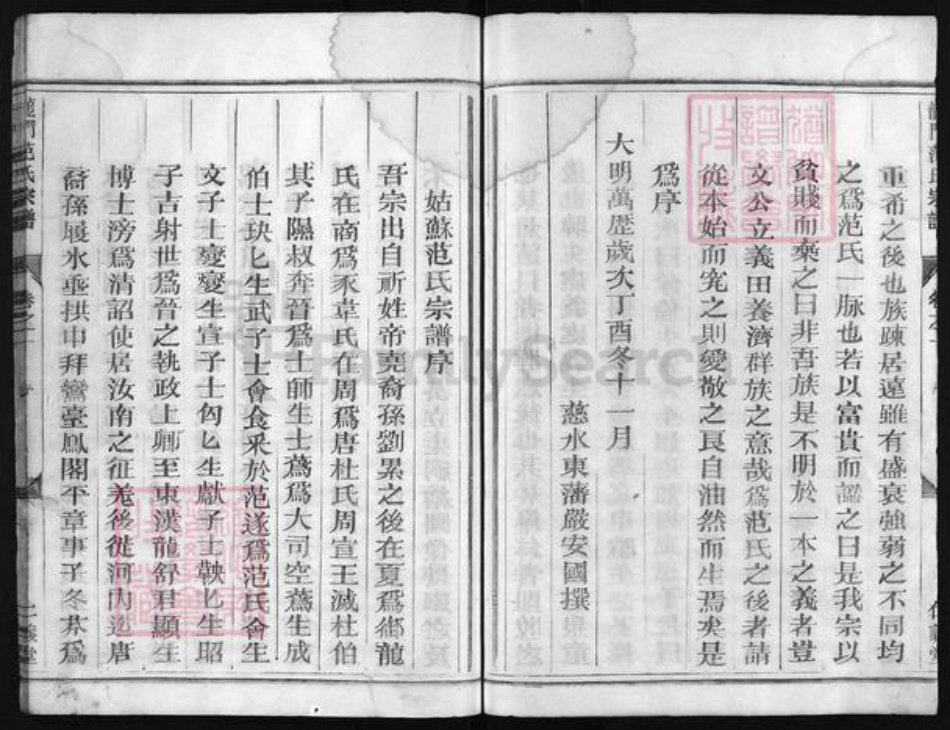 重希之後也族疎居遠雖有盛衰強弱之不同均
之爲范氏一脉也若以富貴而謟之曰是我宗以
貧賤而棄之曰非吾族是不明於一本之義者豈
文公立義田養濟群族之意哉爲范氏之後者請
從本始而究之則愛敬之良自油然而生焉矣是
爲序
大明萬歷歲次丁酉冬十一月
慈水東藩嚴安國撰
姑蘇范氏宗譜序
吾宗出自祈姓帝堯裔孫劉累之後在夏爲御龍
氏在商爲豕韋氏在周爲唐杜氏周宣王滅杜伯
其子隰叔奔晉爲士師生士蔿爲大司空蔿生成
伯士玦匕生武子士會食釆於范遂爲范氏會生
文子士變變生宣子士匃匕生獻子士鞅匕生昭
子吉射世爲晉之執政上卿至東漢龍舒君顯生
博士滂爲清詔使居汝南之征羌後從河內迨唐
裔孫履氷垂拱中拜鸞臺鳳閣平章事子冬芥爲
龍門范氏宗譜
卷之一
仁義堂
FamilySearch